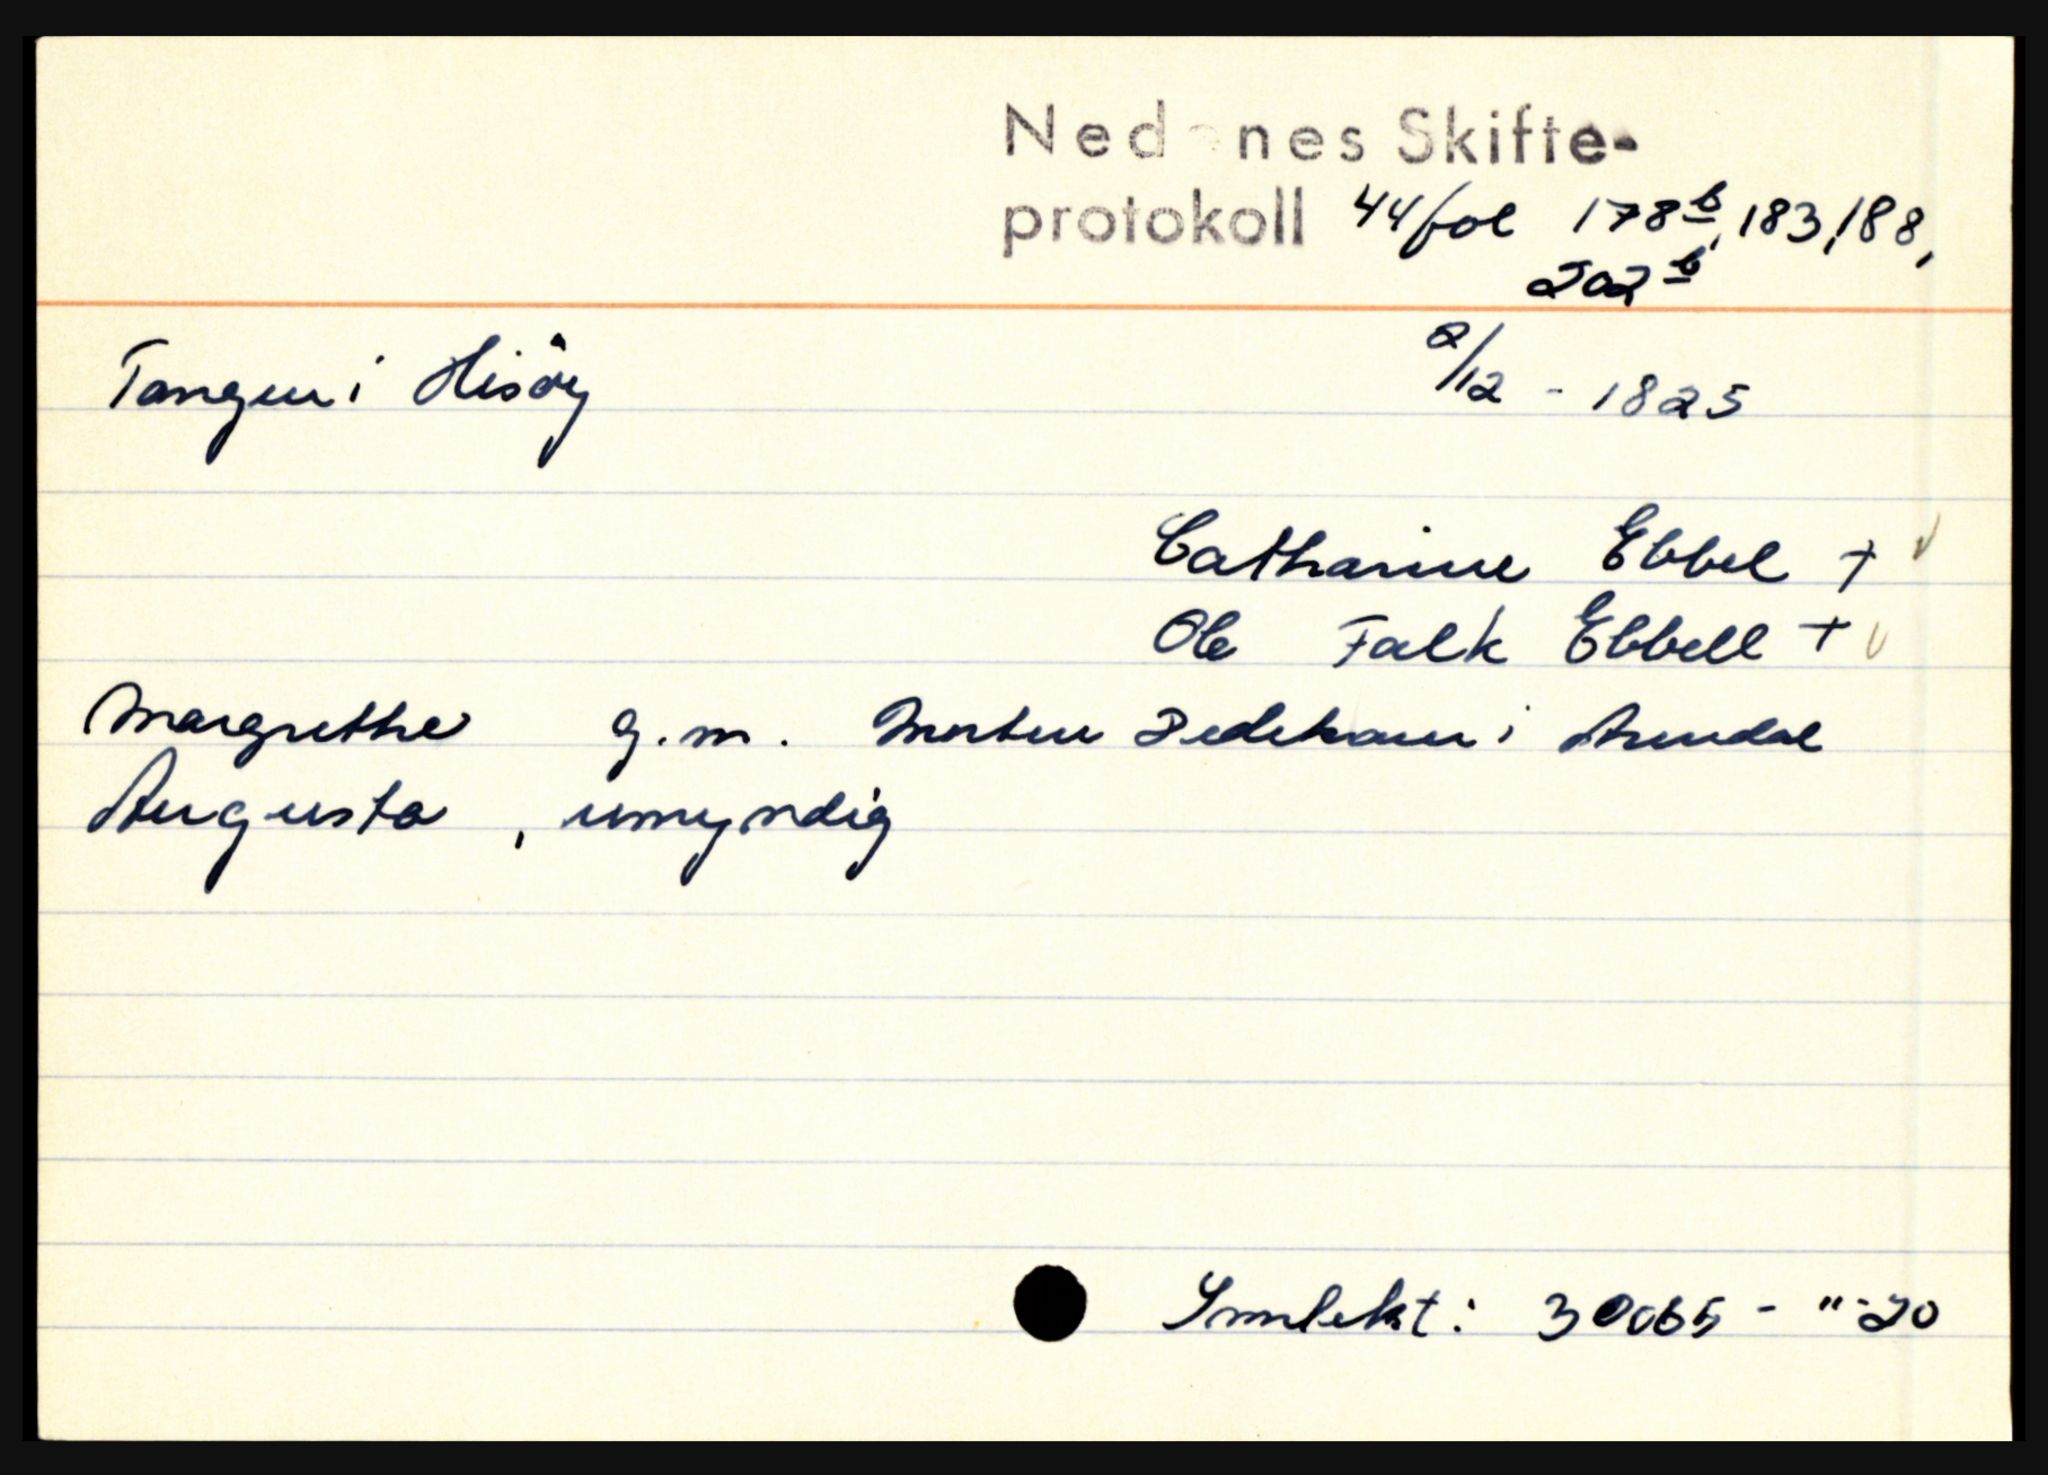 Nedenes Skifte-
protokoll 44 fol 178b, 183, 188,
202b
Tangen i Hisöy 2/12 - 1825
Catharine Ebbel + v
Ole Falk Ebbell + v
Margrethe g.m. Morten Dedekam i Arendal
Augusta, umyndig
Innlekt: 30065 - "-20